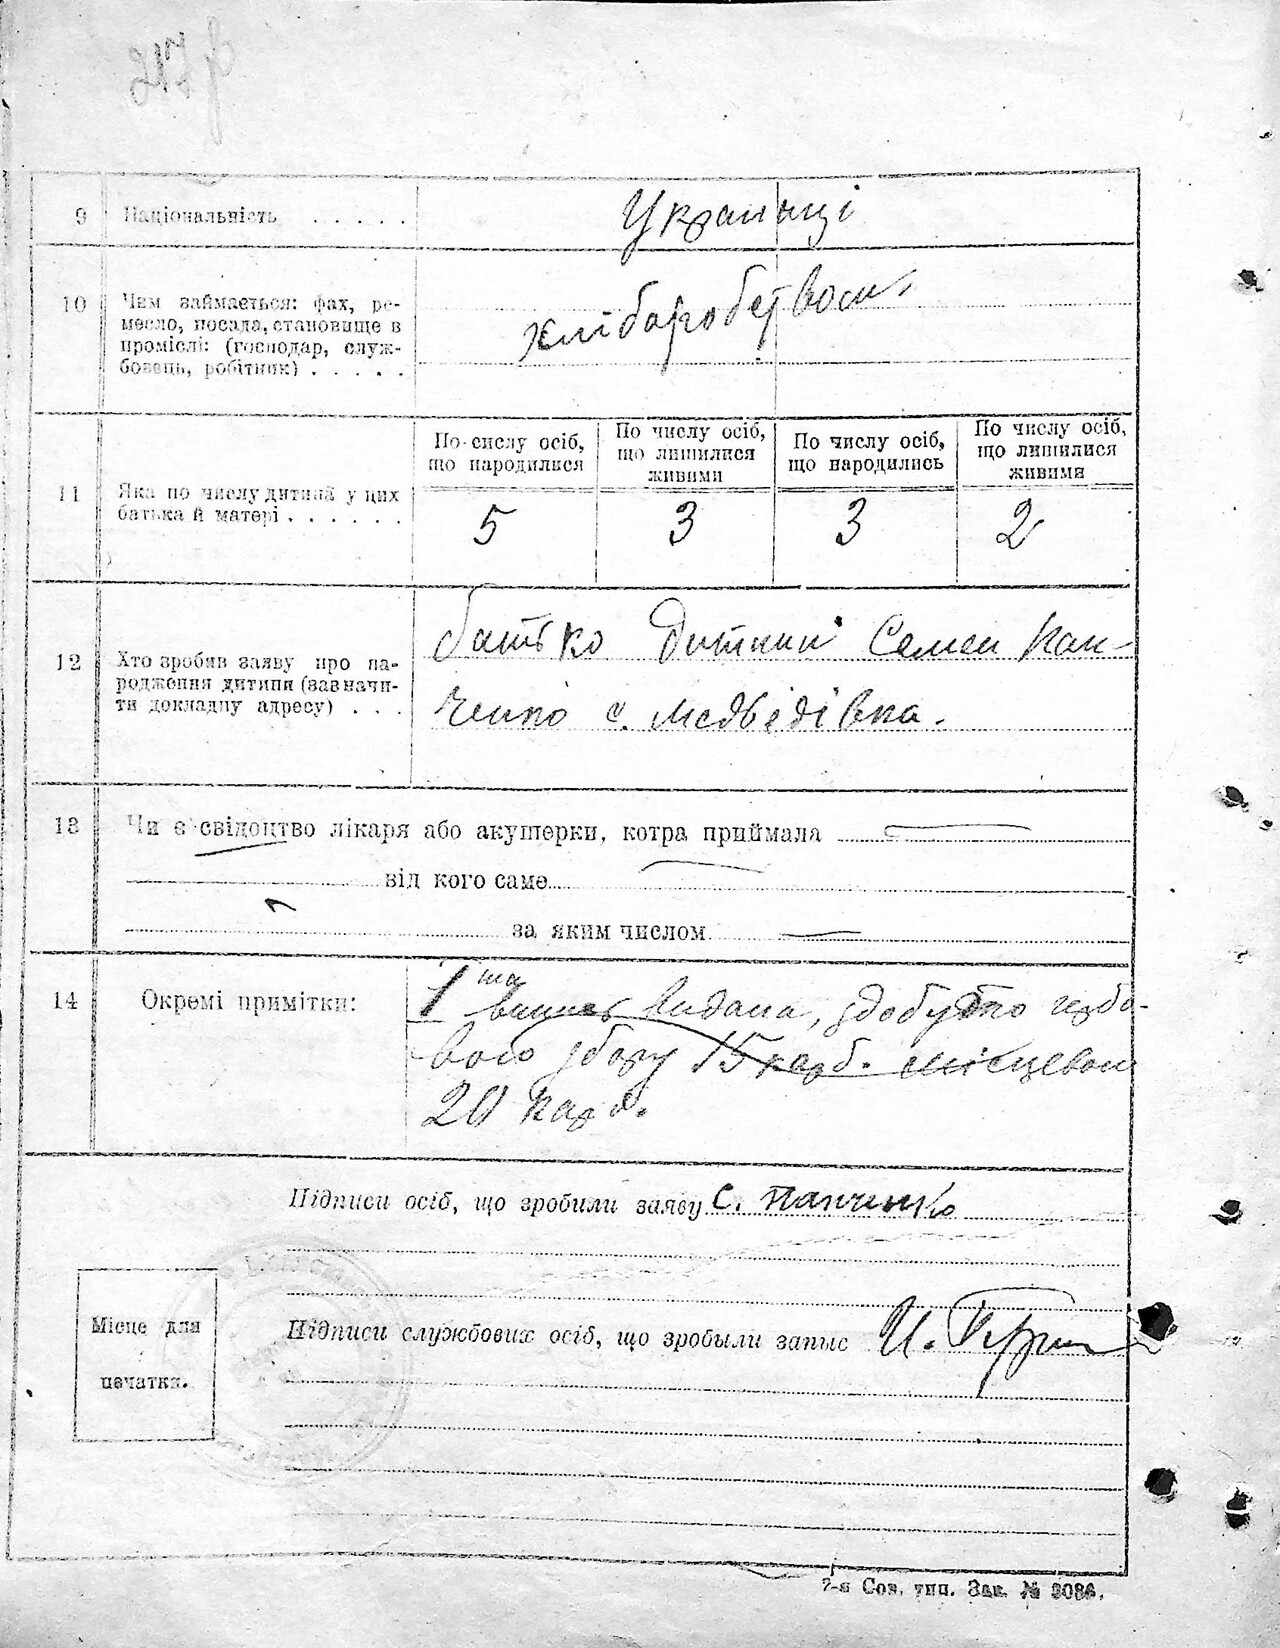 9 Національність . . . . . . Українці
10 Чим займається: фах, ре-
месло, посада, становище в
промислі: (господар, служ-
бовець, робітник) . . . . .
хліборобством
По числу осіб, що народилися
По числу осіб, що лишилися живими
По числу осіб, що народились
По числу осіб, що лишилися живими
11 Яка по числу дитина у цих
батька й матері . . . . . .
5 3 3 2
12 Хто зробив заяву про на-
родження дитини (зазначи-
ти докладну адресу) . . .
батько дитини Семен Пан-
ченко с. Медведівка.
13 Чи є свідоцтво лікаря або акушерки, котра приймала
від кого саме
за яким числом
14 Окремі примітки:
1ша видана, здобуто гербо-
вого збору 15 карб. місцевого
20 карб.
Підписи осіб, що зробили заяву С. Панченко
Місце для
печатки.
Підписи службових осіб, що зробыли запыс И.
2-я Сов. тип. Зак. № 3086.